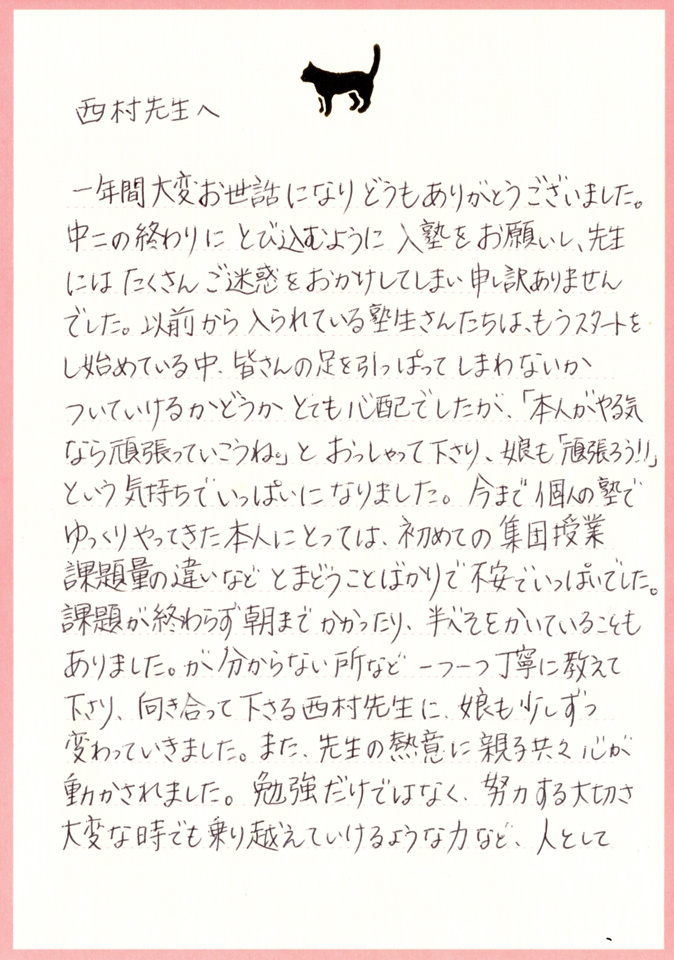 西村先生へ
一年間大変お世話になりどうもありがとうございました。
中二の終わりにとび込むように入塾をお願いし、先生
にはたくさんご迷惑をおかけしてしまい申し訳ありません
でした。以前から入られている塾生さんたちは、もうスタートを
し始めている中、皆さんの足を引っぱってしまわないか
ついていけるかどうかとても心配でしたが、「本人がやる気
なら頑張っていこうね。」とおっしゃって下さり、娘も「頑張ろう!!」
という気持ちでいっぱいになりました。今まで個人の塾で
ゆっくりやってきた本人にとっては、初めての集団授業
課題量の違いなどとまどうことばかりで不安でいっぱいでした。
課題が終わらず朝までかかったり、半べそをかいていることも
ありました。が分からない所など一つ一つ丁寧に教えて
下さり、向き合って下さる西村先生に、娘も少しずつ
変わっていきました。また、先生の熱意に親子共々心が
動かされました。勉強だけではなく、努力する大切さ
大変な時でも乗り越えていけるような力など、人として